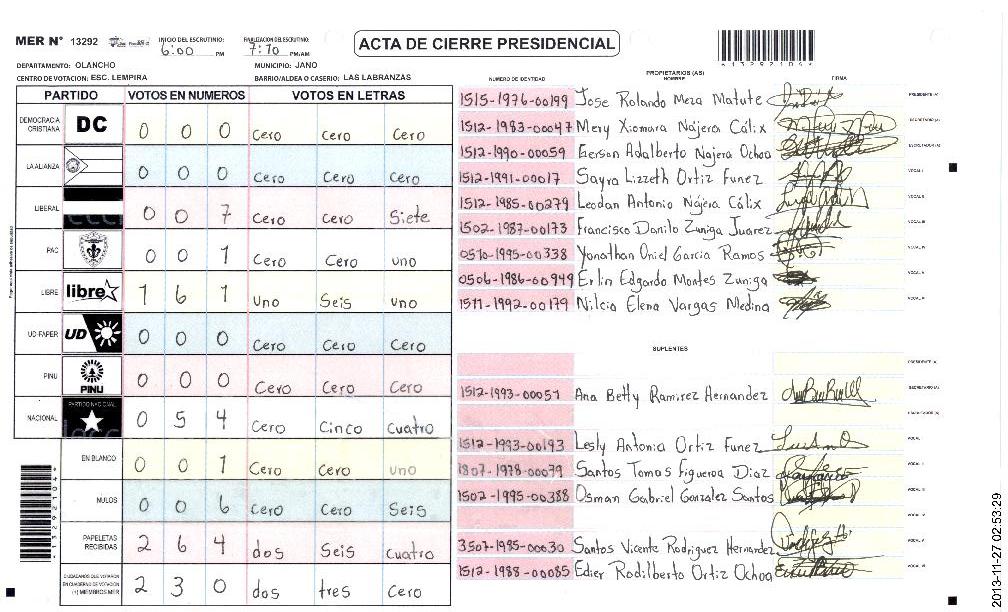 MER N° 13292 INICIO DEL ESCRUTINIO: 6:00 PM FINALIZACION DEL ESCRUTINIO: 7:10 PM/AM
ACTA DE CIERRE PRESIDENCIAL
DEPARTAMENTO: OLANCHO MUNICIPIO: JANO
CENTRO DE VOTACION: ESC. LEMPIRA BARRIO/ALDEA O CASERIO: LAS LABRANZAS
PARTIDO VOTOS EN NUMEROS VOTOS EN LETRAS
DEMOCRACIA CRISTIANA DC 0 0 0 Cero Cero Cero
LA ALIANZA 0 0 0 Cero Cero Cero
LIBERAL 0 0 7 Cero Cero Siete
PAC 0 0 1 Cero Cero uno
LIBRE libre 1 6 1 Uno Seis uno
UD-FAPER UD 0 0 0 Cero Cero Cero
PINU PINU 0 0 0 Cero Cero Cero
NACIONAL PARTIDO NACIONAL 0 5 4 Cero Cinco Cuatro
EN BLANCO 0 0 1 Cero Cero uno
NULOS 0 0 6 Cero Cero Seis
PAPELETAS RECIBIDAS 2 6 4 dos Seis Cuatro
CIUDADANOS QUE VOTARON EN CUADERNO DE VOTACION (+) MIEMBROS MER 2 3 0 dos tres Cero
*13292104*
PROPIETARIOS (AS)
NUMERO DE IDENTIDAD NOMBRE FIRMA
1515-1976-00199 Jose Rolando Meza Matute PRESIDENTE (A)
1512-1983-00047 Mery Xiomara Nájera Cálix SECRETARIO (A)
1512-1990-00059 Gerson Adalberto Najera Ochoa ESCRUTADOR (A)
1512-1991-00017 Sayra Lizzeth Ortiz Funez VOCAL I
1512-1985-00279 Leodan Antonio Nájera Cálix VOCAL II
1502-1987-00173 Francisco Danilo Zuniga Juarez VOCAL III
0510-1995-00338 Yonathan Oniel Garcia Ramos VOCAL IV
0506-1986-00949 Erlin Edgardo Montes Zuniga VOCAL V
1511-1992-00179 Nilcia Elena Vargas Medina VOCAL VI
SUPLENTES
PRESIDENTE (A)
1512-1993-00051 Ana Betty Ramirez Hernandez SECRETARIO (A)
ESCRUTADOR (A)
1512-1993-00193 Lesly Antonia Ortiz Funez VOCAL I
1807-1978-00079 Santos Tomas Figueroa Diaz VOCAL II
1502-1995-00388 Osman Gabriel Gonzalez Santos VOCAL III
VOCAL IV
3507-1985-00030 Santos Vicente Rodriguez Hernandez VOCAL V
1512-1988-00085 Edier Rodilberto Ortiz Ochoa VOCAL VI
2013-11-27 02:53:29